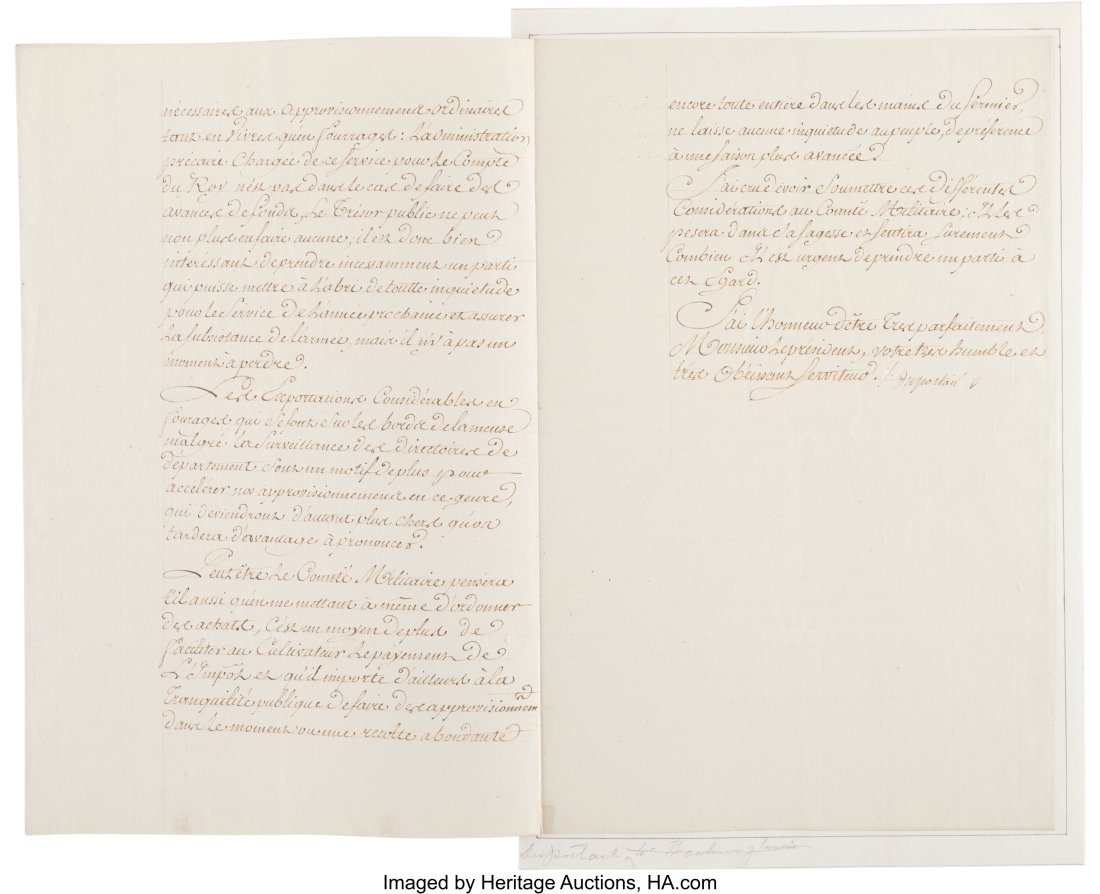 nécessaires aux approvisionnemens ordinaires
tant en vivres qu'en fourrages: L'administration
précaire Chargée de ce service pour le Compte
du Roy n'est pas dans le cas de faire des
avances de fonds, Le Trésor public ne peut
non plus en faire aucune, il est donc bien
intéressant de prendre incessamment un parti
qui puisse mettre à l'abri de toutte inquietude
pour le Service de L'année prochaine et assurer
La subsistance de l'armée, mais il n'y à pas un
moment à perdre.
Les Exportations Considérables en
fourages qui se font sur les bords de la meuse
malgré la surveillance des directoires de
département sont un motif de plus pour
accélérer nos approvisionnemens en ce genre,
qui deviendront d'autant plus chers qu'on
tardera d'avantage à prononcer.
Peut être Le Comité Militaire pensera
t'il aussi qu'en me mettant à même d'ordonner
des achats, C'est un moyen de plus de
faciliter au Cultivateur Le payement de
L'Impôt et qu'il importe d'ailleurs à la
Tranquilité publique de faire des approvisionnem.ns
dans le moment ou une récolte abondante
encore toute entière dans les mains du fermier,
ne laisse aucune inquietude au peuple, de préférence
à une saison plus avancée.
J'ai cru devoir Soumettre ces différentes
Considérations au Comité Militaire; Il les
pesera dans sa sagesse et sentira surement
Combien Il est urgent de prendre un parti à
cet Egard.
J'ai l'honneur d'être Très parfaitement
Monsieur Le président, votre très humble et
très Obéissant Serviteur. /. duportail
Duportail to
Imaged by Heritage Auctions, HA.com